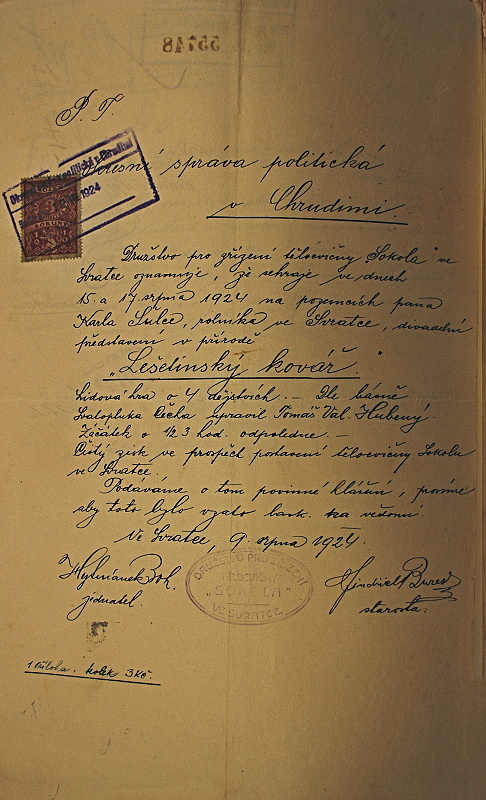 P. T.
Okresní správa politická
v Chrudimi.
1924
Družstvo pro zřízení tělocvičny Sokola ve
Svratce oznamuje, že sehraje ve dnech
15. a 17. srpna 1924 na pozemcích pana
Karla Šulce, rolníka ve Svratce, divadelní
představení v přírodě
"Lešetínský kovář".
Lidová hra o 4 dějstvích. – Dle básně
Svatopluka Čecha upravil Tomáš Val. Hubený
Začátek o ½3 hod. odpoledne. –
Čistý zisk ve prospěch postavení tělocvičny Sokola
ve Svratce.
Podáváme o tom povinné hlášení, prosíme
aby toto bylo vzato lask. na vědomí.
Ve Svratce, 9. srpna 1924.
Boh.
jednatel.
DRUŽSTVO PRO ZŘÍZENÍ
TĚLOCVIČNY
"SOKOLA"
VE SVRATCE.
Jindřich
starosta:
1 Příloha: kolek 3 Kč.
55748